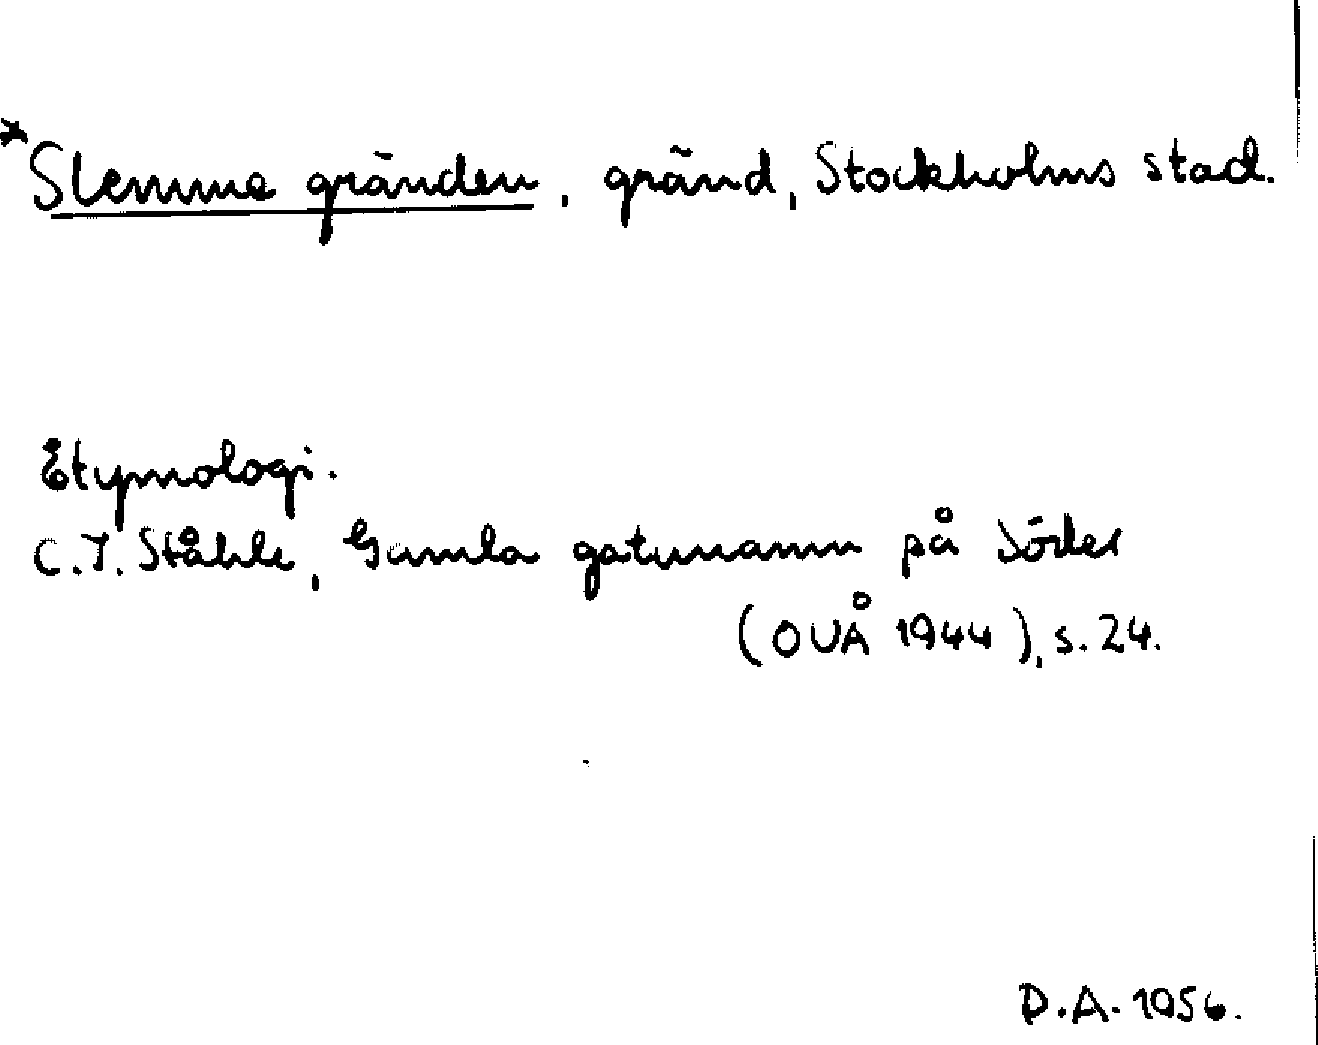 *Slemma gränden, gränd, Stockholms stad.
Etymologi.
C.I. Ståhle, Gamla gatunamn på Söder
(OUÅ 1944), s. 24.
D.A. 1956.